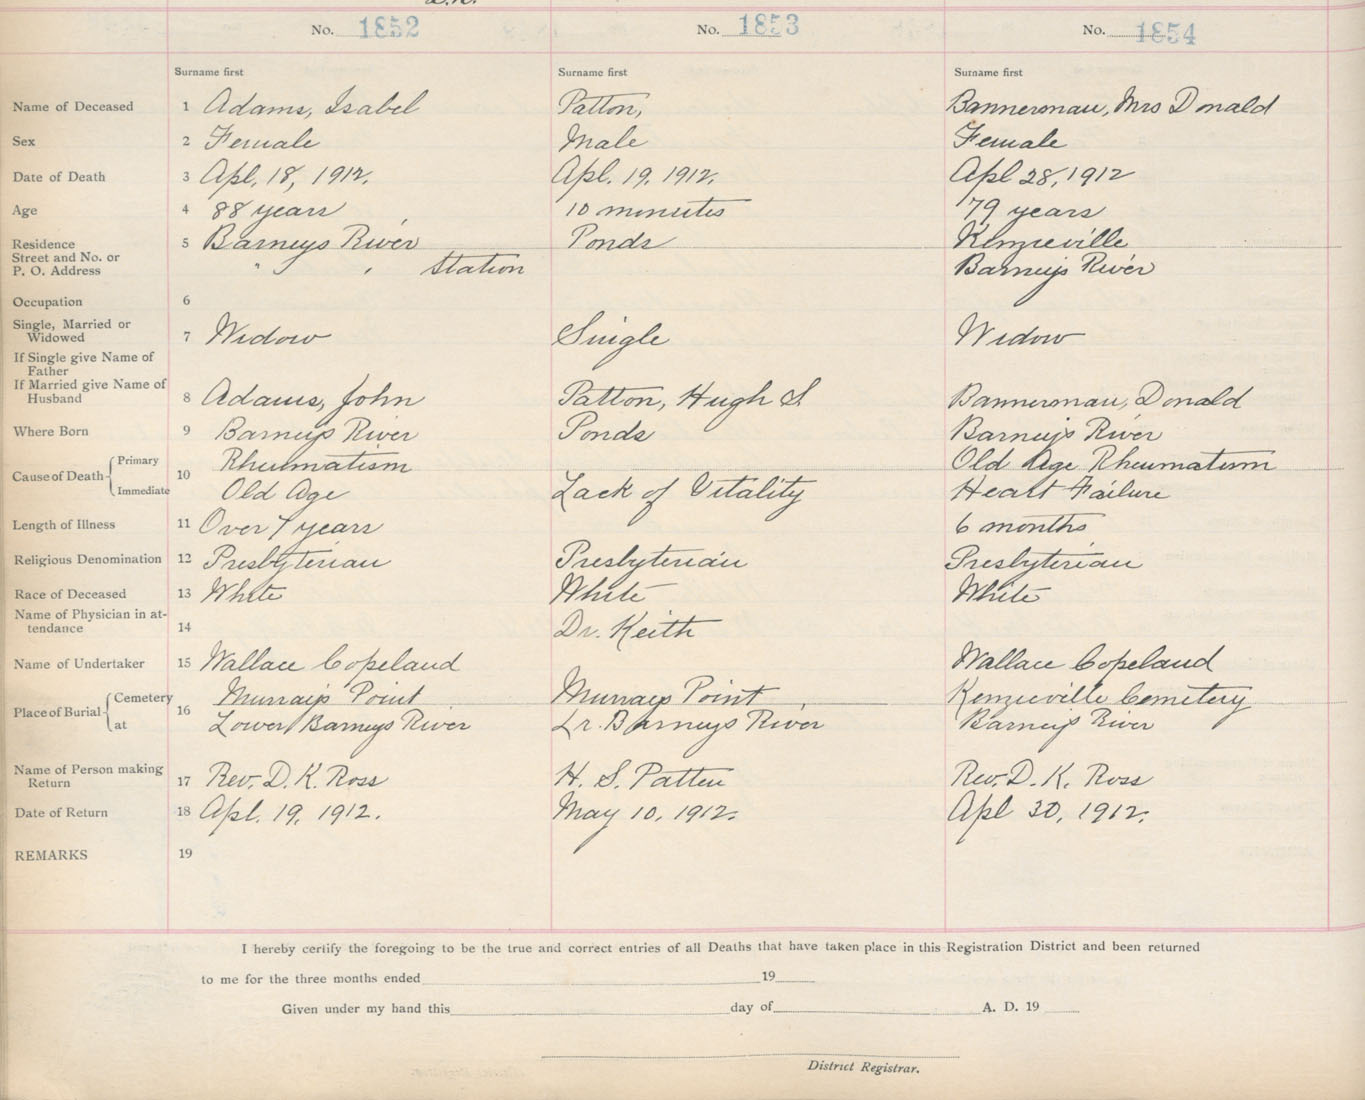 No. 1852 No. 1853 No. 1854
Surname first Surname first Surname first
Name of Deceased 1 Adams, Isabel Patton, Bannerman, Mrs Donald
Sex 2 Female Male Female
Date of Death 3 Apl. 18, 1912. Apl. 19, 1912. Apl 28, 1912
Age 4 88 years 10 minutes 79 years
Residence 5 Barneys River Ponds Kenzieville
Street and No. or
P. O. Address " " Station Barneys River
Occupation 6
Single, Married or
Widowed 7 Widow Single Widow
If Single give Name of
Father
If Married give Name of
Husband 8 Adams, John Patton, Hugh S Bannerman, Donald
Where Born 9 Barneys River Ponds Barneys River
Cause of Death Primary 10 Rheumatism Old Age Rheumatism
Immediate Old Age Lack of Vitality Heart Failure
Length of Illness 11 Over 7 years 6 months
Religious Denomination 12 Presbyterian Presbyterian Presbyterian
Race of Deceased 13 White White White
Name of Physician in at-
tendance 14 Dr. Keith
Name of Undertaker 15 Wallace Copeland Wallace Copeland
Place of Burial Cemetery 16 Murrays Point Murrays Point Kenzieville Cemetery
at Lower Barneys River Lr. Barneys River Barneys River
Name of Person making
Return 17 Rev. D. K. Ross H. S. Patten Rev. D. K. Ross
Date of Return 18 Apl. 19, 1912. May 10, 1912. Apl 30, 1912.
REMARKS 19
I hereby certify the foregoing to be the true and correct entries of all Deaths that have taken place in this Registration District and been returned
to me for the three months ended 19
Given under my hand this day of A. D. 19
District Registrar.